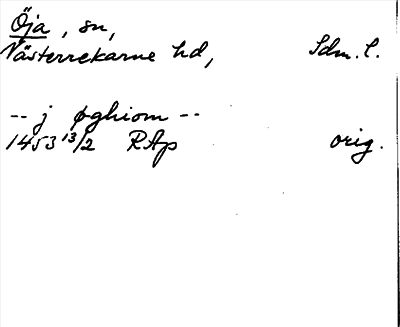 Öja, sn,
Västerrekarne hd, Sdm. l.
-- j øghiom --
1453 13/2 RAp orig.